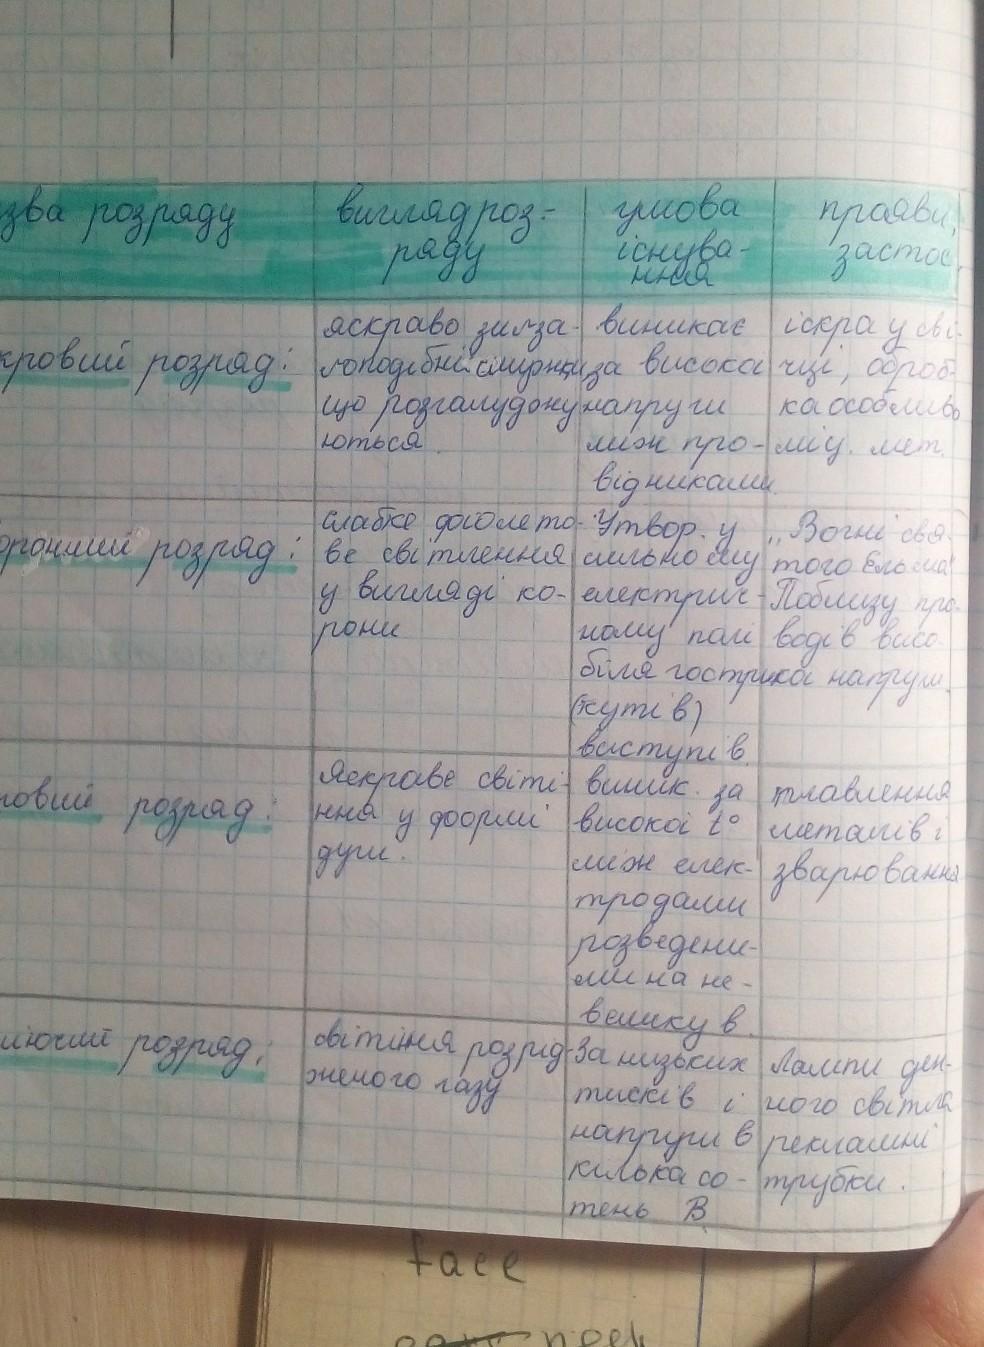 зва розряду
вигляд роз-
ряду
умова
існува-
ння
прояви,
застос.
кровий розряд:
яскраво зигза-
гоподібні смужки,
що розгалуджу
ються.
виникає
за високої
напруги
між про-
відниками.
іскра у сві-
чці, оброб-
ка особливо
міц. мет.
оронний розряд:
слабке фіолето-
ве світлення
у вигляді ко-
рони
Утвор. у
сильному
електрич-
ному полі
біля гострих
(кутів)
виступів.
„Вогні свя-
того Ельма"
Поблизу про-
водів висо-
кої напруги.
говий розряд:
Яскраве світі-
ння у формі
дуги.
виник. за
високої t°
між елек-
тродами
розведени-
ми на не-
велику в.
плавлення
металів і
зварювання
ліючий розряд:
світіння розрід-
женого газу
За низьких
тисків і
напруги в
кілька со-
тень В.
Лампи ден-
ного світла
рекламні
трубки.
face